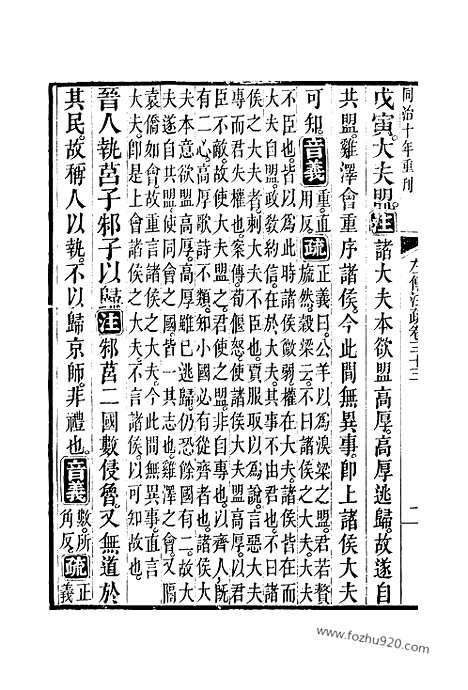 同治十年重刊 左傳注疏卷三十三 二
戊寅大夫盟注諸大夫本欲盟高厚高厚逃歸故遂自
共盟雞澤會重序諸侯今此間無異事卽上諸侯大夫
可知音義重直用反疏正義曰公羊以為溴梁之盟君若贅
旒然穀梁云不曰諸侯之大夫大夫
不臣也皆以為此時諸侯微弱權在大夫諸侯皆在而
大夫自盟政敎約信在於大夫其事不由君也不曰諸
侯之大夫者刺大夫不臣也賈服取以為說言惡大夫
專而君失權也案傳荀偃怒使諸侯大夫盟高厚以君
臣不敵故使大夫盟之君使之盟非自專也以齊人旣
有二心高厚歌詩不類知小國必有從齊者也諸侯大
夫本意欲盟高厚高厚雖已逃歸仍恐餘國有二故大
夫遂自共盟使同會之國皆一其志也雞澤之會又隔
袁僑如會故重言諸侯之大夫今此間無異事直言
大夫卽是上會諸侯之大夫不言諸侯以可知故
晉人執莒子邾子以歸注邾莒二國數侵魯又無道於
其民故稱人以執不以歸京師非禮也音義數所角反疏正義
www.fozhu920.com